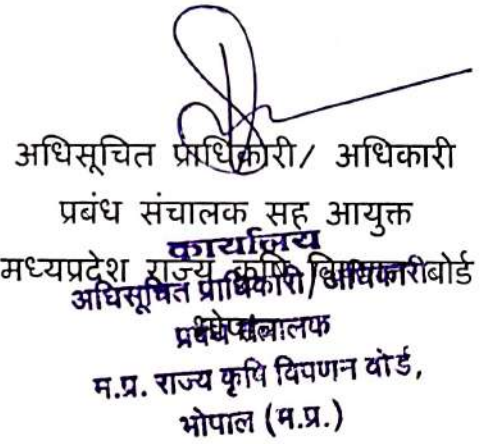 अधिसूचित प्राधिकारी/ अधिकारी
प्रबंध संचालक सह आयुक्त
कार्यालय
मध्यप्रदेश राज्य कृषि विपणन बोर्ड
अधिसूचित प्राधिकारी/अधिकारी
प्रबंध संचालक
म.प्र. राज्य कृषि विपणन बोर्ड,
भोपाल (म.प्र.)